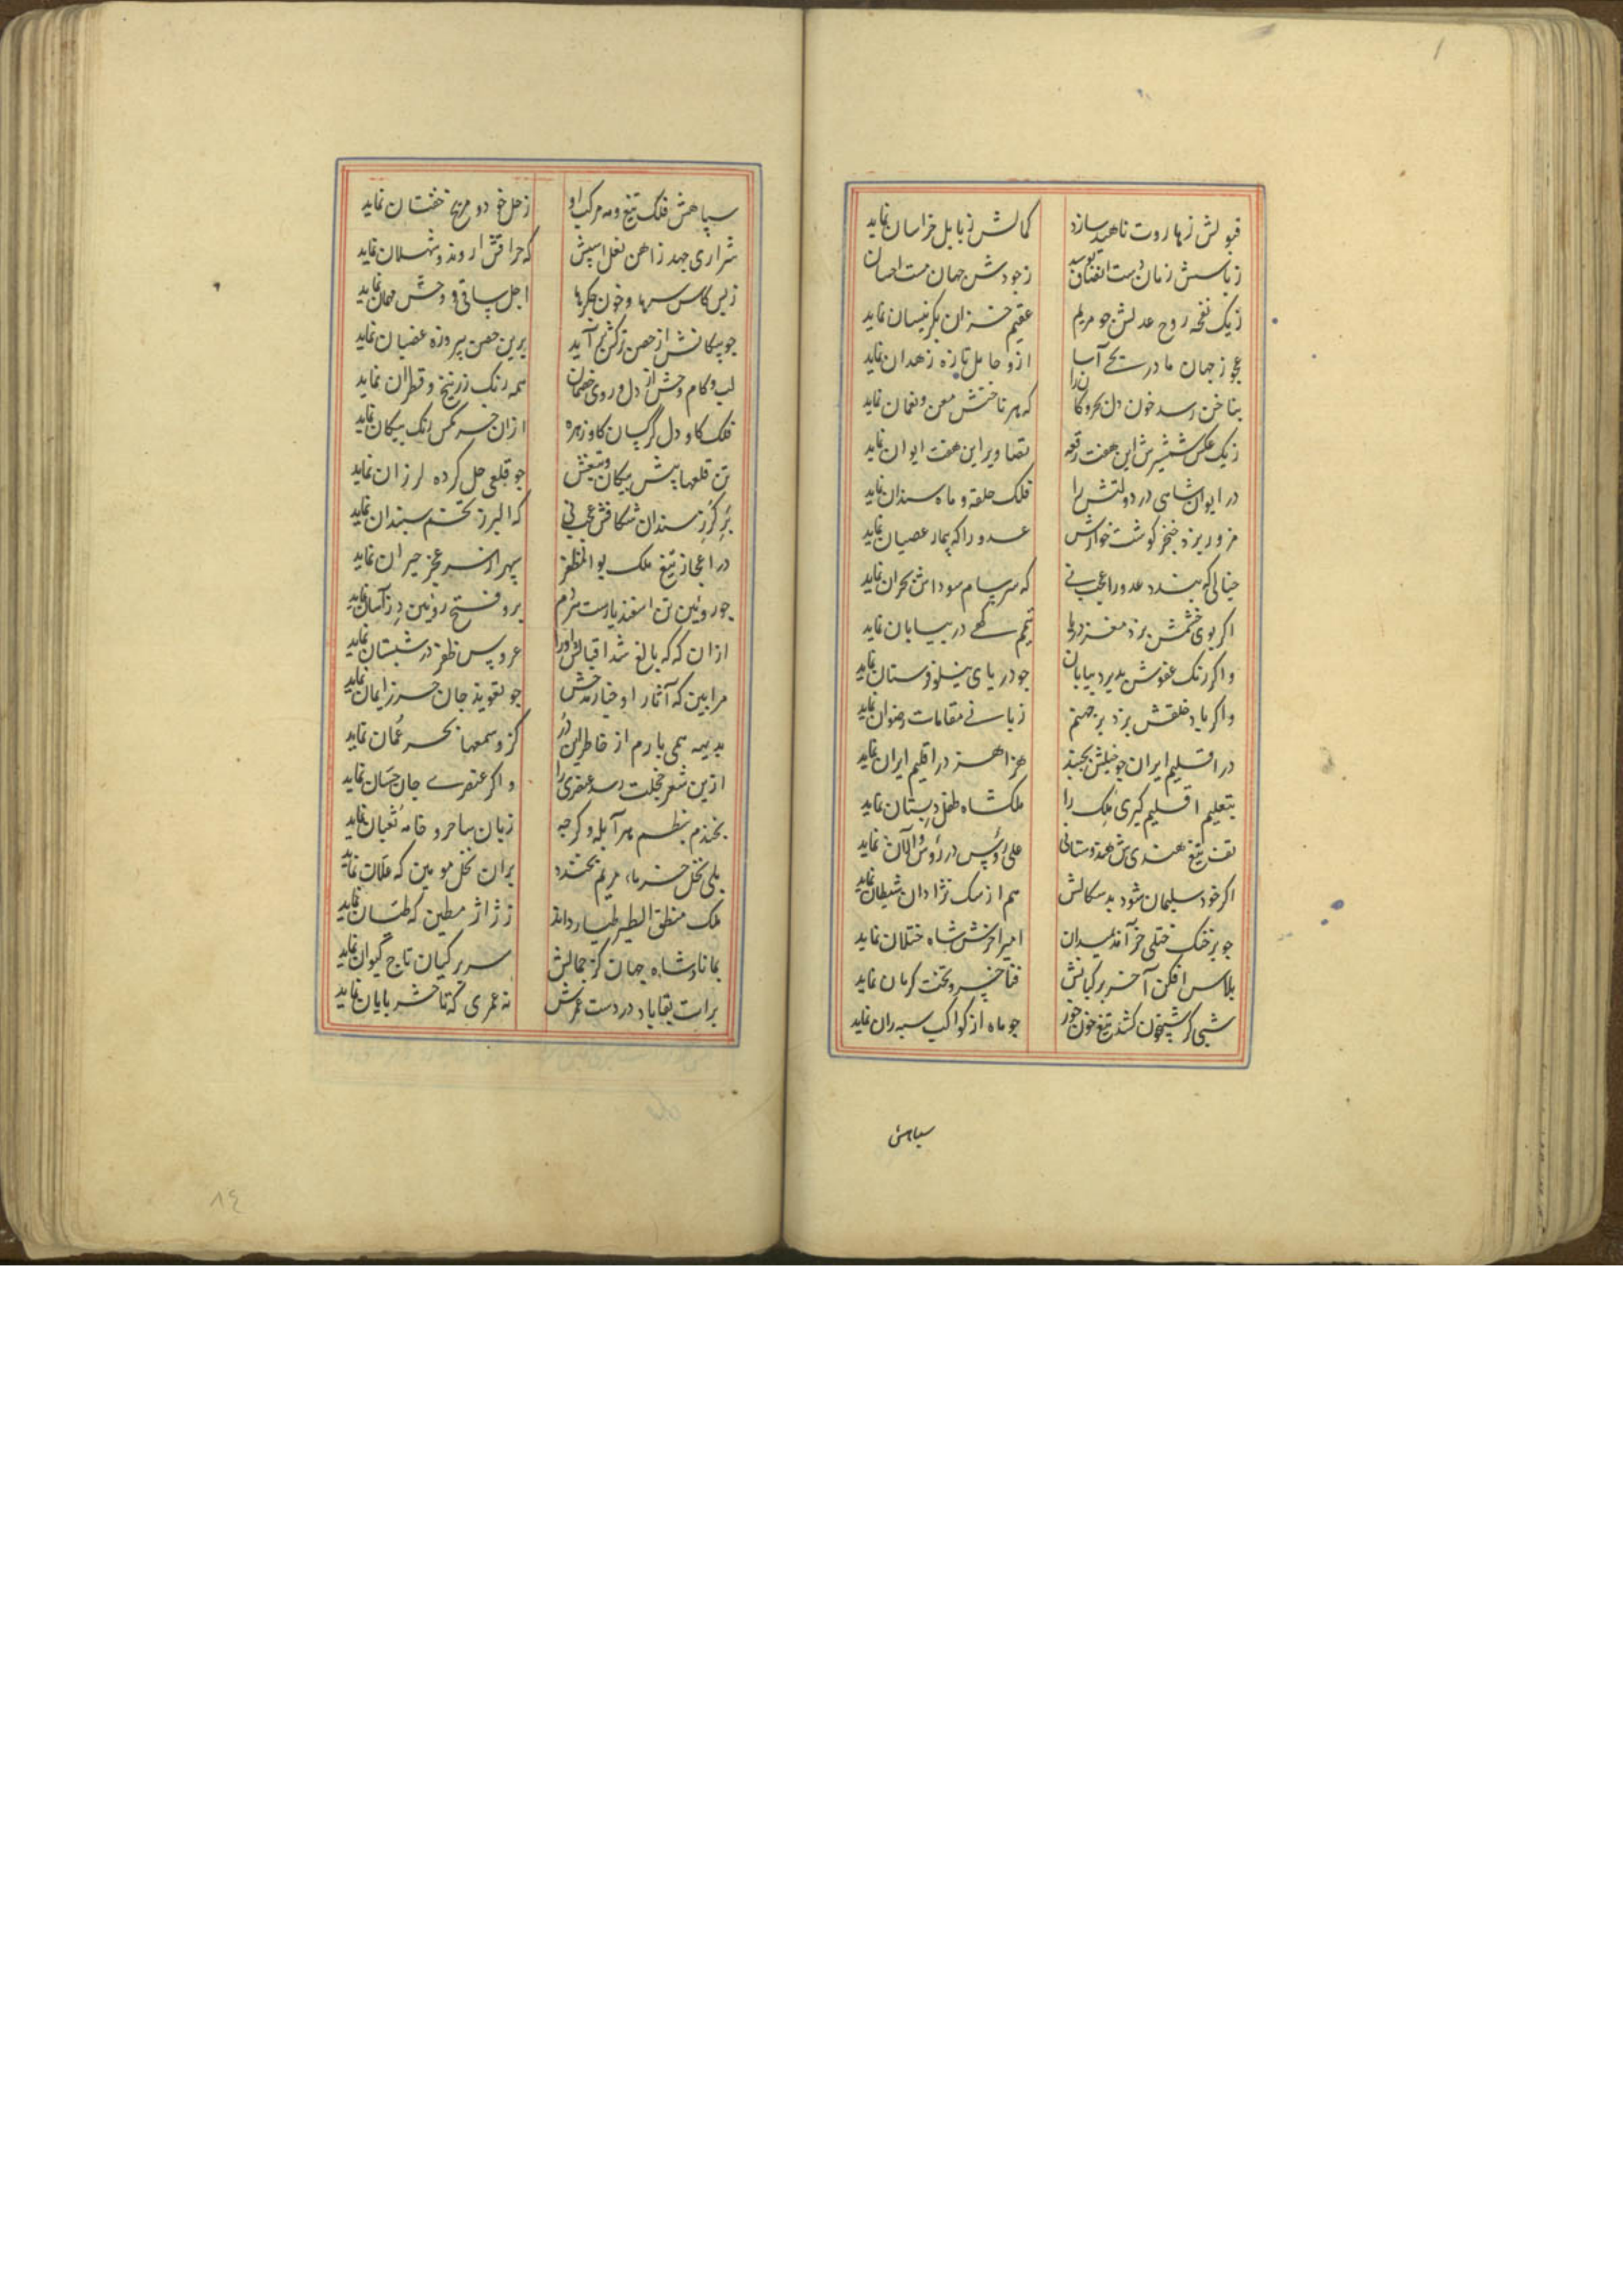 قبولش زهاروت ناهید سازد کمالش ز بابل خراسان نماید
زباسش زمان دست انصاف بوسد زجودش جهان مست احسان نماید
زیک نفحه روح عدلش جو مریم عقیم خزان بکر نیسان نماید
عجوز جهان مادر یحیی آسا ازو حامل تازه زهدان نماید
بناخن رسد خون دل بحر و کان را که هر ناخنش معن و نعمان نماید
زیک عکس شمشیرش این هفت رقعه تصاویر این هفت ایوان نماید
در ایوان شاهی در دولتش را فلک حلقه و ماه سندان نماید
مزور پزد خنجر کوشت خوارش عدو را که بیمار عصیان نماید
خیالی که بندد عدو را عجب نی که سرسام سوداش بحران نماید
اکر بوی خشمش برد مغز دریا تیمم کهی در بیابان نماید
واکر رنک عفوش پدیرد بیابان جو دریای نیلوفرستان نماید
واکر باد خلقش برد بر جهنم زبانی مقامات رضوان نماید
در اقلیم ایران جو خیلش بجنبد هزاهز در اقلیم ایران نماید
بتعلیم اقلیم کیری ملک را ملکشاه طفل دبستان نماید
تف تیغ هندیش هندوستانی علی روس در روس و الان نماید
اکر خود سلیمان شود بدسکالش هم از سک نژادان شیطان نماید
جو بر خنک ختلی خرآمد بمیدان امیر آخرش شاه ختلان نماید
پلاس افکن آخر بر کیانش فناخسرو تخت کرمان نماید
شبی کر شبیخون کشد تیغ خون خور جو ماه از کواکب سپه ران نماید
سپاهش
سپاهش فلک تیغ و مه مرکب او زحل خود و مریخ خفتان نماید
شراری جهد زاهن نعل اسپش که حراقش اروند و ثهلان نماید
زبس کاس سرها و خون جکرها اجل ساقی و وحش مهمان نماید
جو پیکانش از حصن ترکش برآید برین حصن پیروزه غضبان نماید
لب و کام وحش از دل و روی خصمان همه رنک زرنیخ و قطران نماید
فلک کاو دل کر بسان کاو زهره ازان جسر کس رنک پیکان نماید
تن قلعها پیش پیکان و تیغش جو قلعی حل کرده لرزان نماید
بر کرز سندان شکافش عجب نی که البرز تخم سپندان نماید
در اعجاز تیغ ملک بوالمظفر سپهر از سر عجز حیران نماید
جو روئین تن اسفندیارست هردم برو فتح روئین دز آسان نماید
از ان که که بالغ شد اقبالش او را عروس ظفر در شبستان نماید
مرا بین که آثار او خبارمدحش جو تعویذ جان حرز ایمان نماید
بدیهه همی بارم از خاطر این در کزو سمعها بحر عمان نماید
ازین شعر خجلت رسد عنصری را واکر عنصری جان حسان نماید
بخندم بنظم هر آبله کرچه زبان ساحر و خامه ثعبان نماید
بلی نخل خرماء مریم بخندد بران نخل مومین که علان نماید
ملک منطق الطیر طیار داند ز ژاژ مطین که طیان نماید
بماناد شاه جهان کز جمالش سریر کیان تاج کیوان نماید
برات بقا باد در دست عمرش نه عمری که تا حشر پایان نماید
۸۴